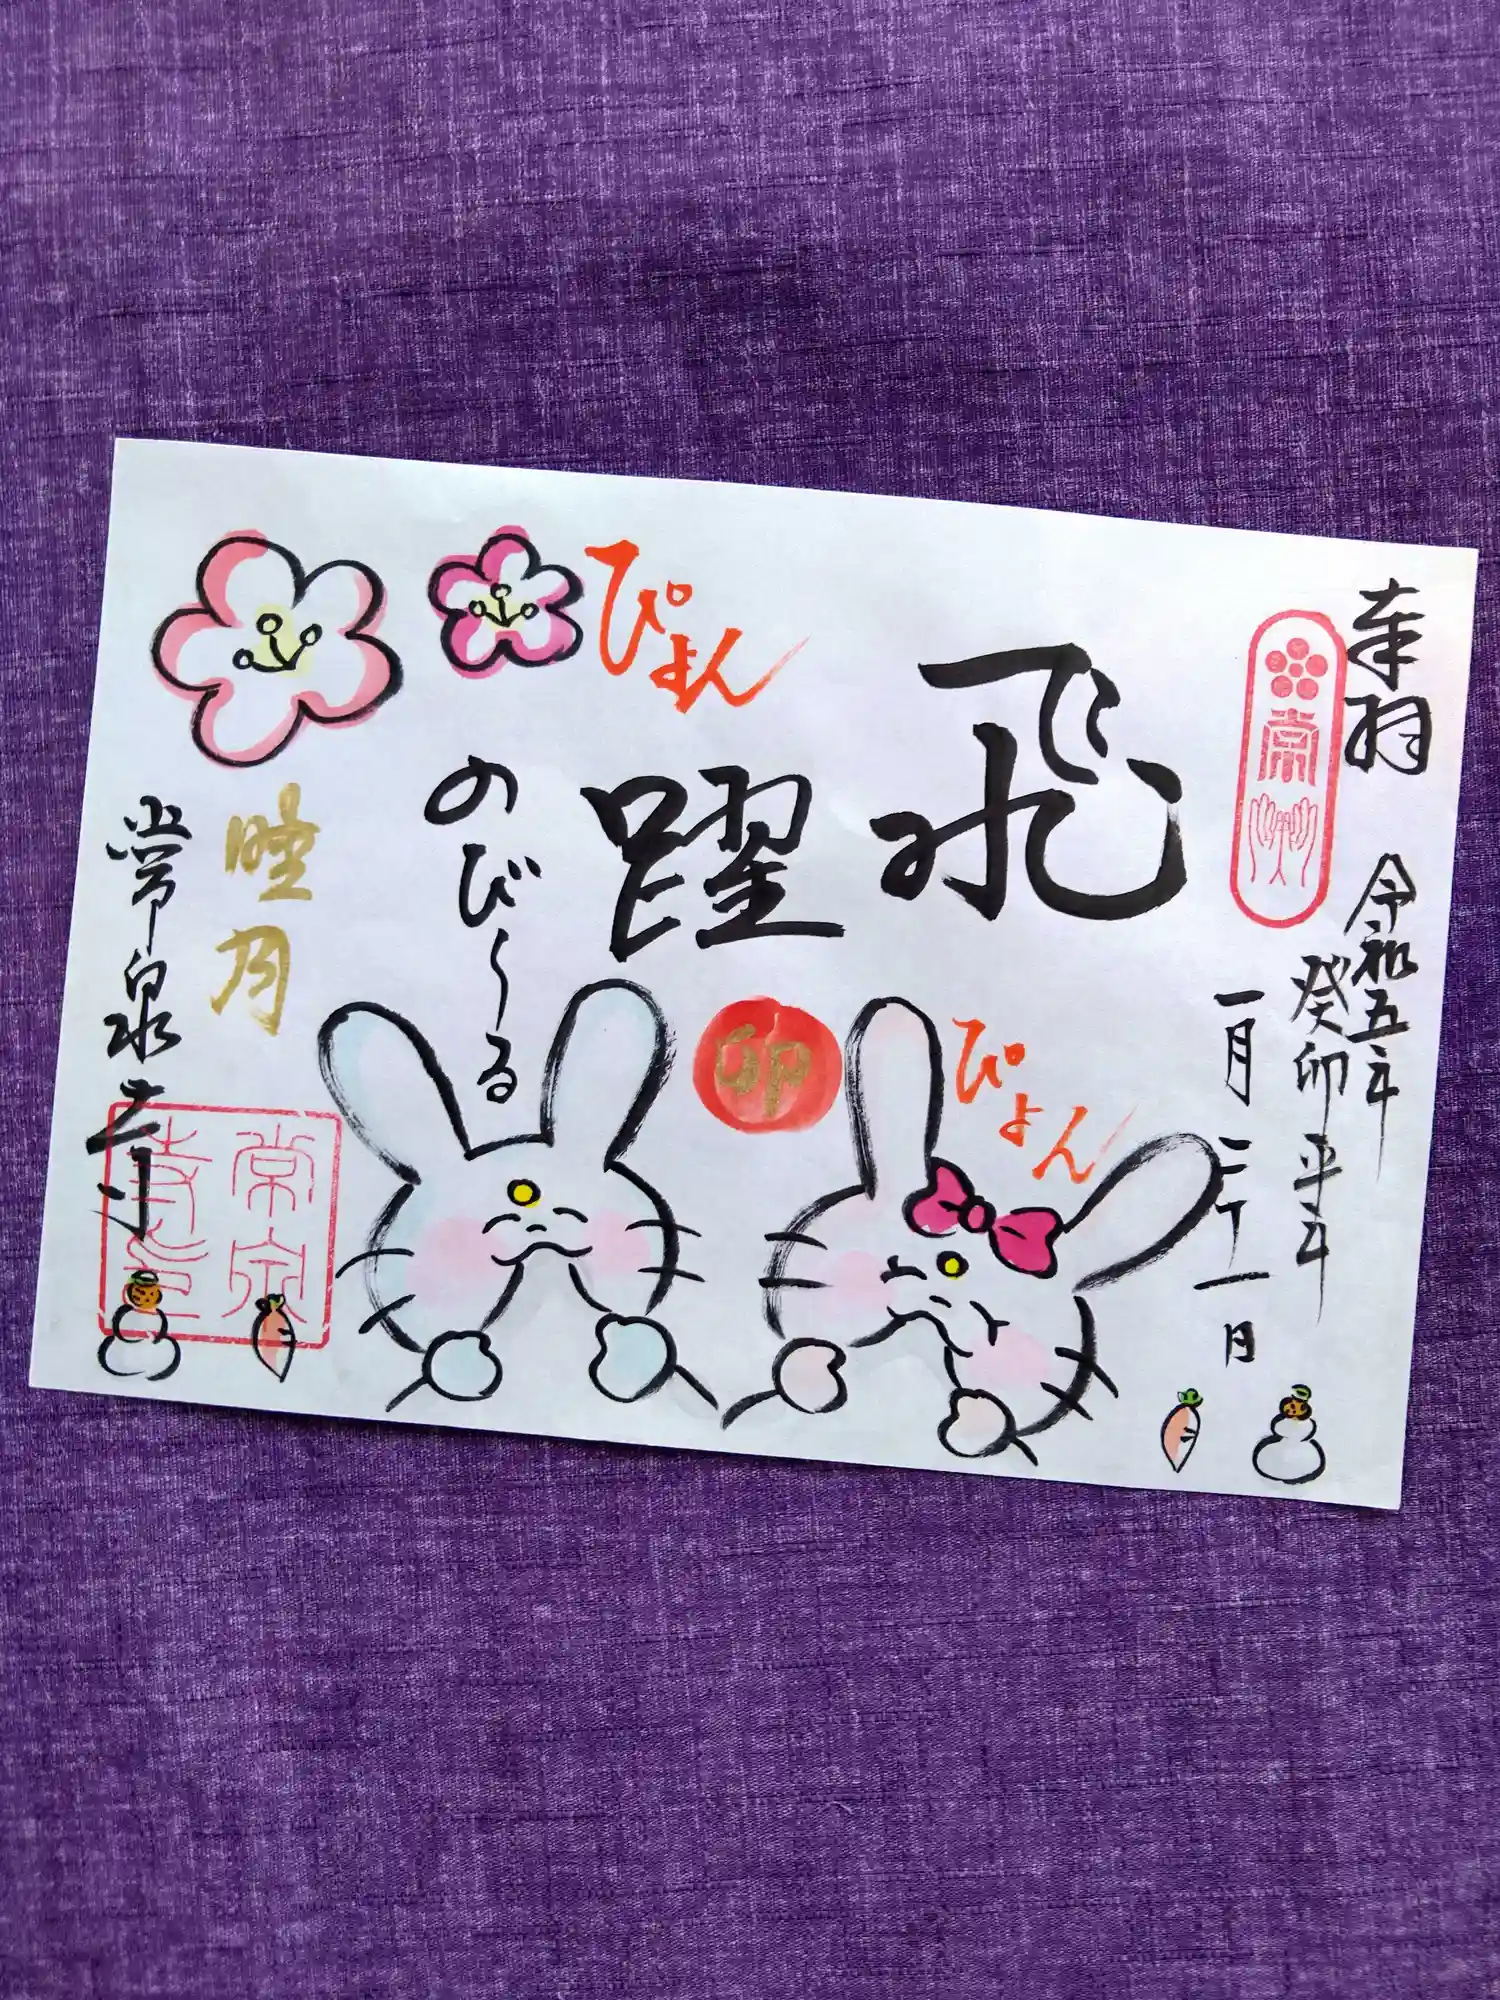 奉拝
令和五年
癸卯
平年
一月二十一日
常
飛躍
ぴょん
ぴょん
卯
のび〜る
睦月
常泉寺
常泉
寺印